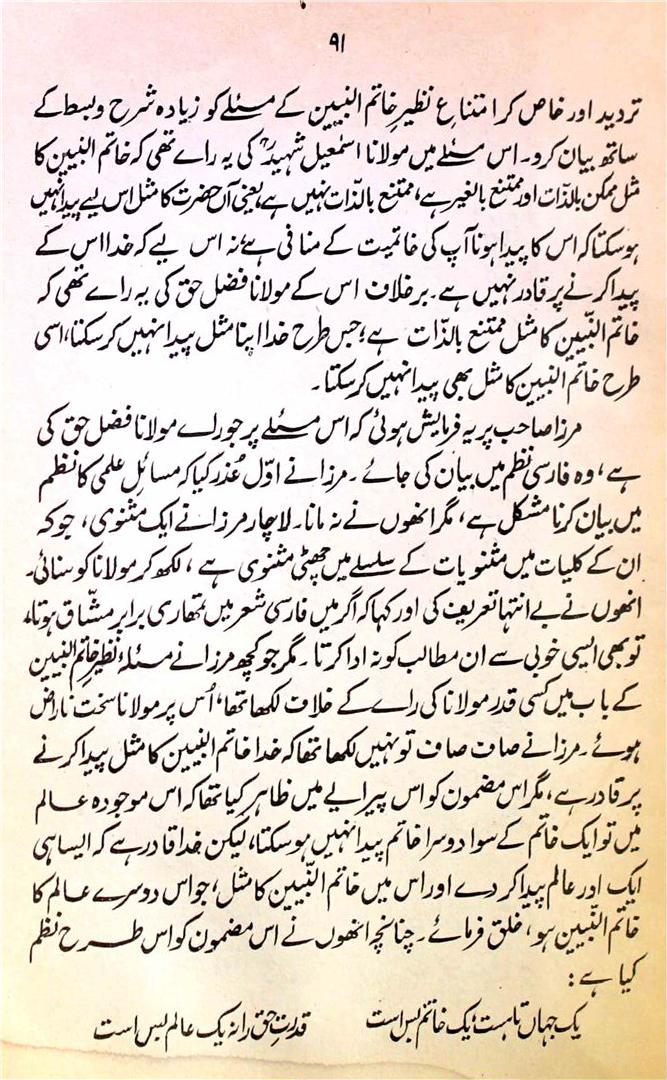 ۹۱
تردید اور خاص کر امتناعِ نظیرِ خاتم النبیین کے مسئلے کو زیادہ شرح و بسط کے
ساتھ بیان کرو۔ اس مسئلے میں مولانا اسمٰعیل شہیدؒ کی یہ راے تھی کہ خاتم النبیین کا
مثل ممکن بالذّات اور ممتنع بالغیر ہے، ممتنع بالذّات نہیں ہے، یعنی آں حضرت کا مثل اس لیے پیدا نہیں
ہو سکتا کہ اس کا پیدا ہونا آپ کی خاتمیت کے منافی ہے؛ نہ اس لیے کہ خدا اس کے
پیدا کرنے پر قادر نہیں ہے۔ برخلاف اس کے مولانا فضل حق کی یہ راے تھی کہ
خاتم النّبیین کا مثل ممتنع بالذّات ہے؛ جس طرح خدا اپنا مثل پیدا نہیں کر سکتا، اسی
طرح خاتم النبیین کا مثل بھی پیدا نہیں کر سکتا۔
مرزا صاحب پر یہ فرمایش ہوئی کہ اس مسئلے پر جو راے مولانا فضل حق کی
ہے، وہ فارسی نظم میں بیان کی جائے۔ مرزا نے اوّل عُذر کیا کہ مسائلِ علمی کا نظم
میں بیان کرنا مشکل ہے، مگر انھوں نے نہ مانا۔ لاچار مرزا نے ایک مثنوی، جو کہ
ان کے کلیات میں مثنویات کے سلسلے میں چھٹی مثنوی ہے، لکھ کر مولانا کو سنائی۔
انھوں نے بے انتہا تعریف کی اور کہا کہ اگر میں فارسی شعر میں تمھاری برابر مشّاق ہوتا،
تو بھی ایسی خوبی سے ان مطالب کو نہ ادا کرتا۔ مگر جو کچھ مرزا نے مسئلۂ نظیرِ خاتم النبیین
کے باب میں کسی قدر مولانا کی راے کے خلاف لکھا تھا، اُس پر مولانا سخت ناراض
ہوئے۔ مرزا نے صاف صاف تو نہیں لکھا تھا کہ خدا خاتم النبیین کا مثل پیدا کرنے
پر قادر ہے، مگر اس مضمون کو اس پیرایے میں ظاہر کیا تھا کہ اس موجودہ عالم
میں تو ایک خاتم کے سوا دوسرا خاتم پیدا نہیں ہو سکتا، لیکن خدا قادر ہے کہ ایسا ہی
ایک اور عالم پیدا کر دے اور اس میں خاتم النّبیین کا مثل، جو اس دوسرے عالم کا
خاتم النّبیین ہو، خلق فرمائے۔ چنانچہ انھوں نے اس مضمون کو اس طرح نظم
کیا ہے:
یک جہاں تا ہست؛ یک خاتم بس است    قدرتِ حق را نہ یک عالم بس است